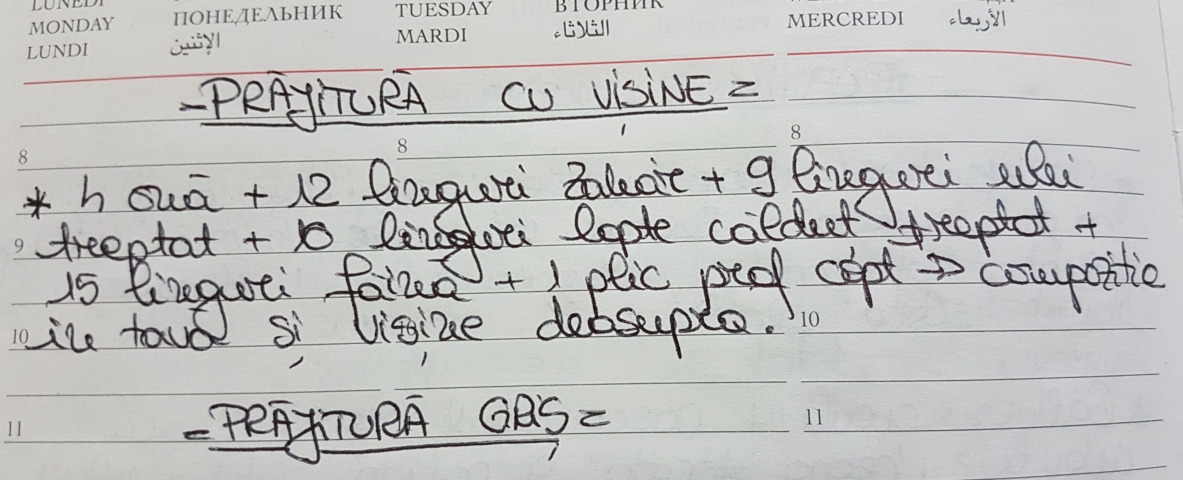 LUNEDI
MONDAY ПОНЕДЕЛЬНИК TUESDAY ВТОРНИК MERCREDI الأربعاء
LUNDI الإثنين MARDI الثلاثاء
=PRĂJITURĂ CU VIȘINE=
8 8 8
* 4 ouă + 12 linguri zahăr + 9 linguri ulei
9 treptat + 10 linguri lapte călduț treptat +
15 linguri făină + 1 plic praf copt → compoziție
10 în tavă și vișine deasupra. 10
=PRĂJITURĂ GRIȘ=
11 11